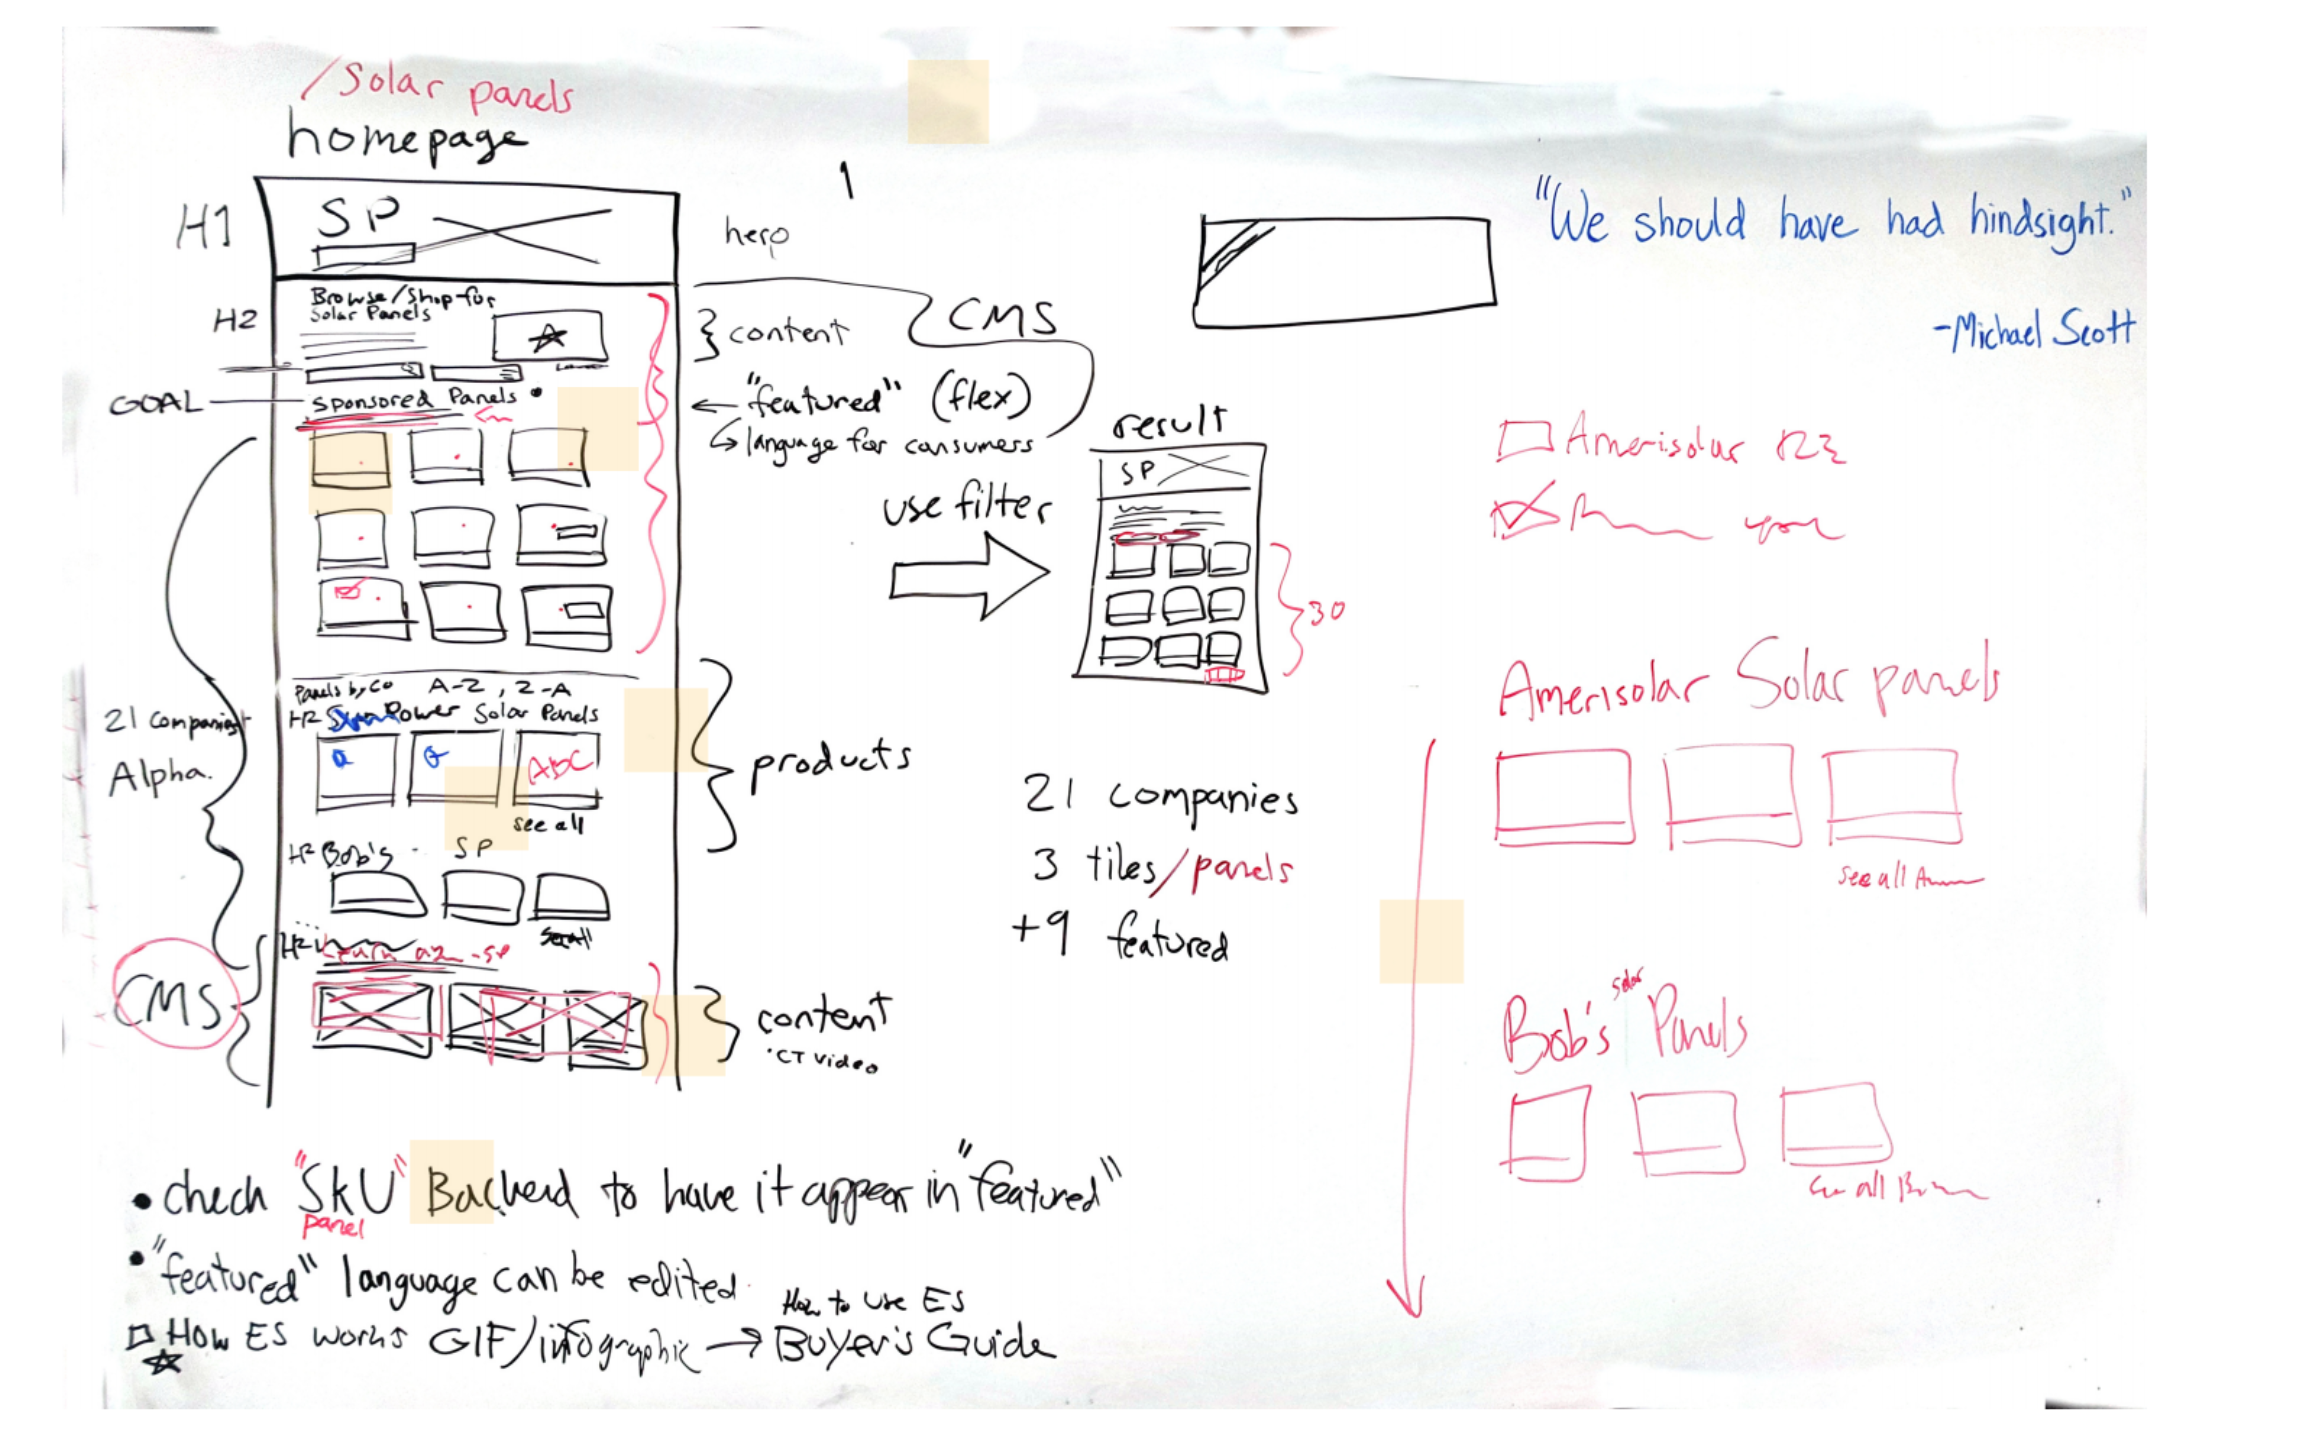 /Solar panels
homepage
1
H1
SP
hero
H2
Browse/Shop for
Solar Panels
content
CMS
GOAL
Sponsored Panels
"featured" (flex)
language for consumers
21 companies
Alpha.
Panels by Co A-Z, Z-A
H2 SunPower Solar Panels
ABC
see all
products
H2 Bob's SP
see all
H2
Learn
CMS
content
•CT video
use filter
result
SP
30
21 companies
3 tiles/panels
+9 featured
"We should have had hindsight."
-Michael Scott
Amerisolar
Amerisolar Solar panels
see all
Bob's solar Panels
all
• check "SKU" Backend to have it appear in "featured"
panel
• "featured" language can be edited.
How to use ES
How ES works GIF/infographic → Buyer's Guide